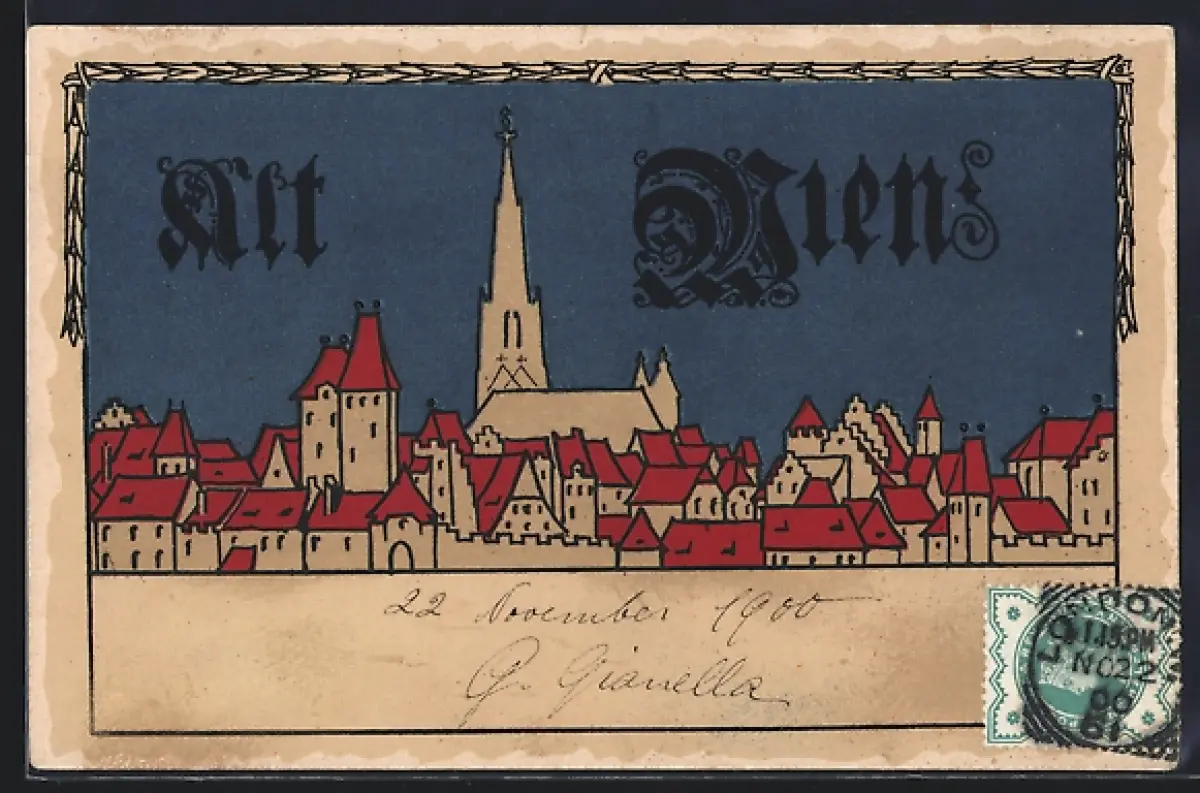 Alt Wien
22 November 1900
G. Gianella
LONDON
1.15PM
NO 22
00